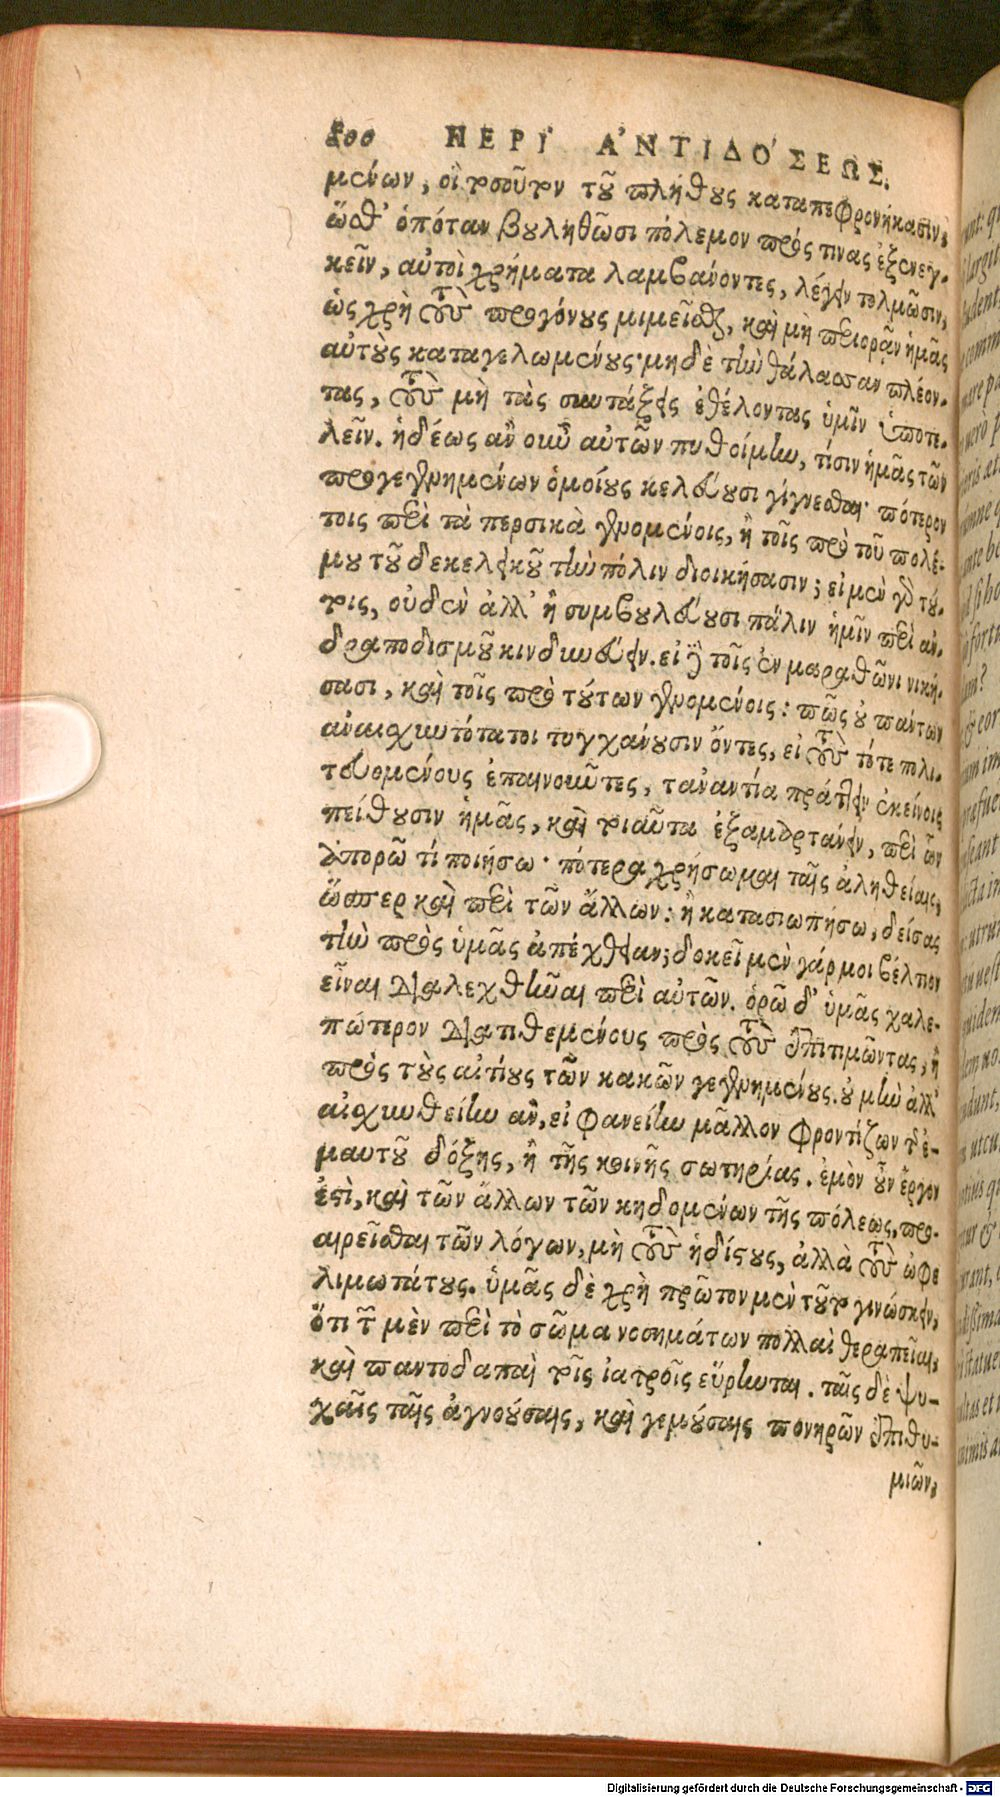 800 ΠΕΡΙ ἈΝΤΙΔΟ´ΣΕΩΣ.
μένων, οἳ τοσοῦτον τοῦ πλήθους καταπεφρονήκασιν,
ὥσθ' ὁπόταν βουληθῶσι πόλεμον πρός τινας ἐξενεγ-
κεῖν, αὐτοὶ χρήματα λαμβάνοντες, λέγειν τολμῶσιν,
ὡς χρὴ τοὺς προγόνους μιμεῖσθαι, καὶ μὴ περιορᾷν ἡμᾶς
αὐτοὺς καταγελωμένους· μηδὲ τὴν θάλασσαν πλέον-
τας, τοὺς μὴ τὰς συντάξεις ἐθέλοντας ὑμῖν ὑποτε-
λεῖν. ἡδέως ἂν οὖν αὐτῶν πυθοίμην, τίσιν ἡμᾶς τῶν
προγεγενημένων ὁμοίους κελεύουσι γίγνεσθαι· πότερον
τοῖς περὶ τὰ περσικὰ γενομένοις, ἢ τοῖς πρὸ τοῦ πολέ-
μου τοῦ δεκελεικοῦ τὴν πόλιν διοικήσασιν; εἰ μὲν γὰρ τού-
τοις, οὐδὲν ἀλλ' ἢ συμβουλεύουσι πάλιν ἡμῖν περὶ ἀν-
δραποδισμοῦ κινδυνεύειν. εἰ δὲ τοῖς ἐν μαραθῶνι νική-
σασι, καὶ τοῖς πρὸ τούτων γενομένοις: πῶς οὐ πάντων
ἀναισχυντότατοι τυγχάνουσιν ὄντες, εἰ τοὺς τότε πολι-
τευομένους ἐπαινοῦντες, τἀναντία πράττειν ἐκείνοις
πείθουσιν ἡμᾶς, καὶ τοιαῦτα ἐξαμαρτάνειν, περὶ ὧν
ἀπορῶ τί ποιήσω· πότερα χρήσωμαι ταῖς ἀληθείαις,
ὥσπερ καὶ περὶ τῶν ἄλλων: ἢ κατασιωπήσω, δείσας
τὴν πρὸς ὑμᾶς ἀπέχθειαν; δοκεῖ μὲν γάρ μοι βέλτιον
εἶναι διαλεχθῆναι περὶ αὐτῶν. ὁρῶ δ' ὑμᾶς χαλε-
πώτερον διατιθεμένους πρὸς τοὺς ἐπιτιμῶντας, ἢ
πρὸς τοὺς αἰτίους τῶν κακῶν γεγενημένους. οὐ μὴν ἀλλ'
αἰσχυνθείην ἂν, εἰ φανείην μᾶλλον φροντίζων τ' ἐ-
μαυτοῦ δόξης, ἢ τῆς κοινῆς σωτηρίας. ἐμὸν οὖν ἔργον
ἐστὶ, καὶ τῶν ἄλλων τῶν κηδομένων τῆς πόλεως, προ-
αιρεῖσθαι τῶν λόγων, μὴ τοὺς ἡδίστους, ἀλλὰ τοὺς ὠφε
λιμωτάτους. ὑμᾶς δὲ χρὴ πρῶτον μὲν τοῦτο γινώσκειν,
ὅτι τῶν μὲν περὶ τὸ σῶμα νοσημάτων πολλαὶ θεραπεῖαι,
καὶ παντοδαπαὶ τοῖς ἰατροῖς εὕρηνται. ταῖς δὲ ψυ-
χαῖς ταῖς ἀγνοούσαις, καὶ γεμούσαις πονηρῶν ἐπιθυ-
μιῶν,
Digitalisierung gefördert durch die Deutsche Forschungsgemeinschaft - DFG